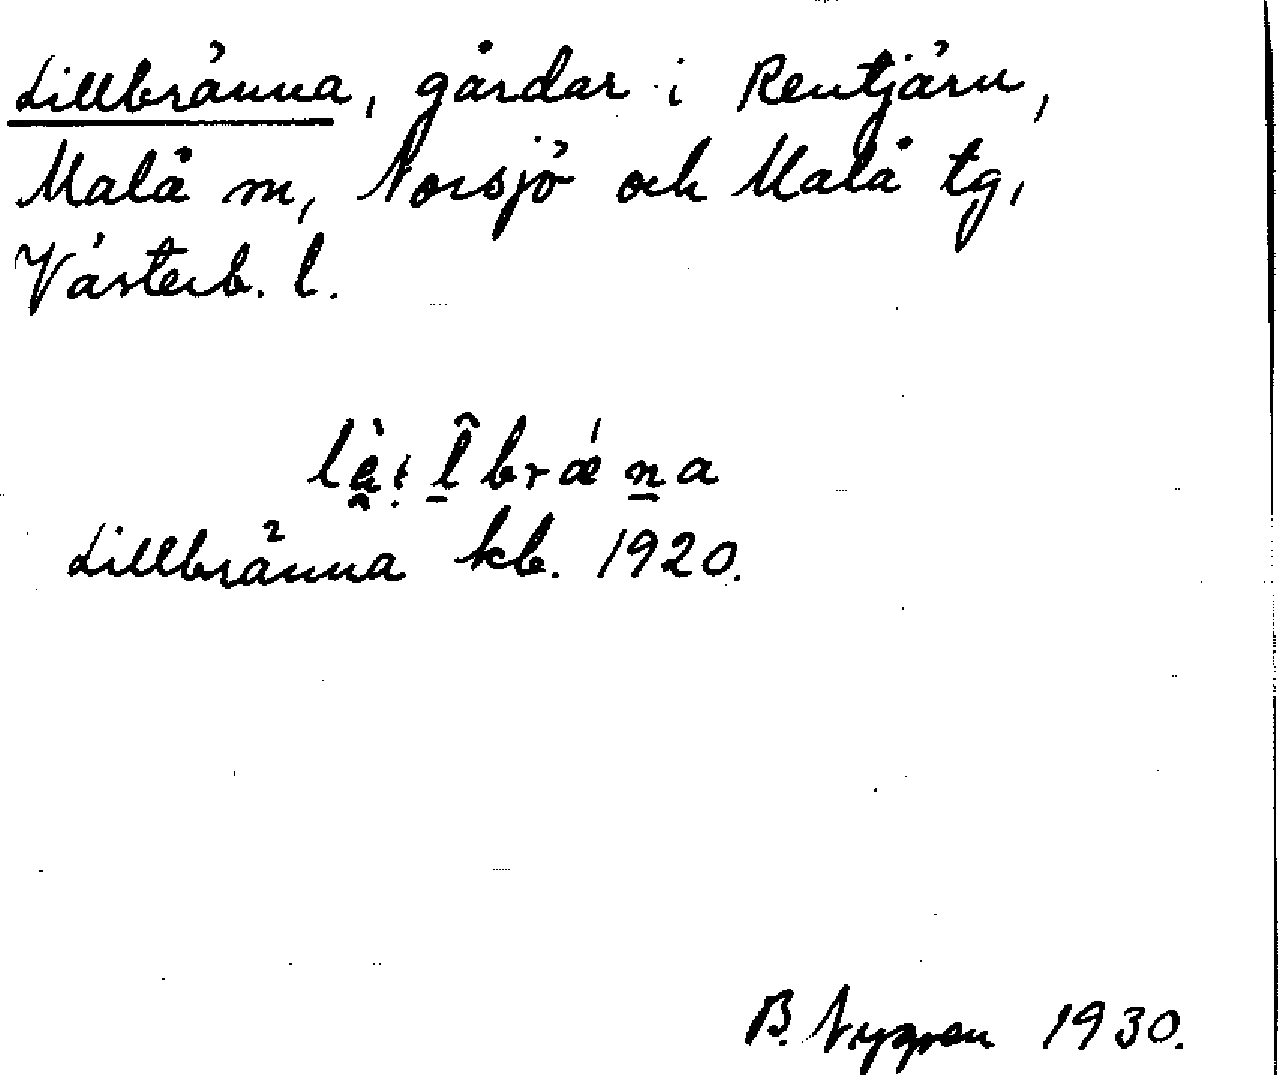 Lillbränna, gårdar i Rentjärn,
Malå m, Norsjö och Malå tg,
Västerb. l.
Lillbränna kb. 1920.
B. Nygren 1930.